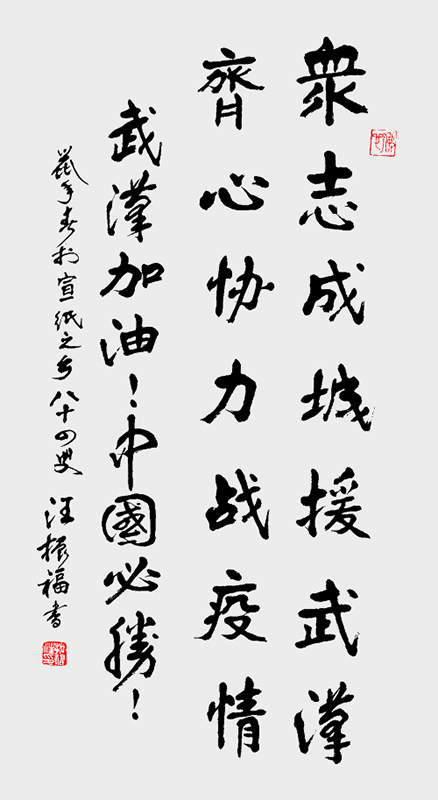 眾志成城援武漢
齊心协力战疫情
武漢加油！中國必勝！
鼠年春於宣紙之乡八十四叟汪振福書